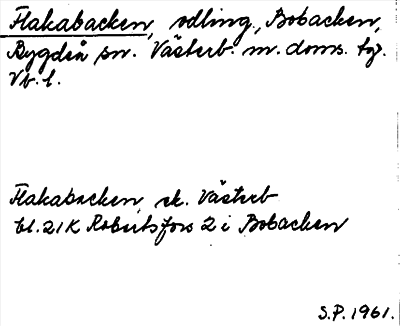 Flakabacken, odling, Bobacken,
Bygdeå sn. Västerb. m. doms. tg.
Vb. l.
Flakabacken, ek. Västerb
bl. 21K Robertsfors 2 i Bobacken
S.P. 1961.